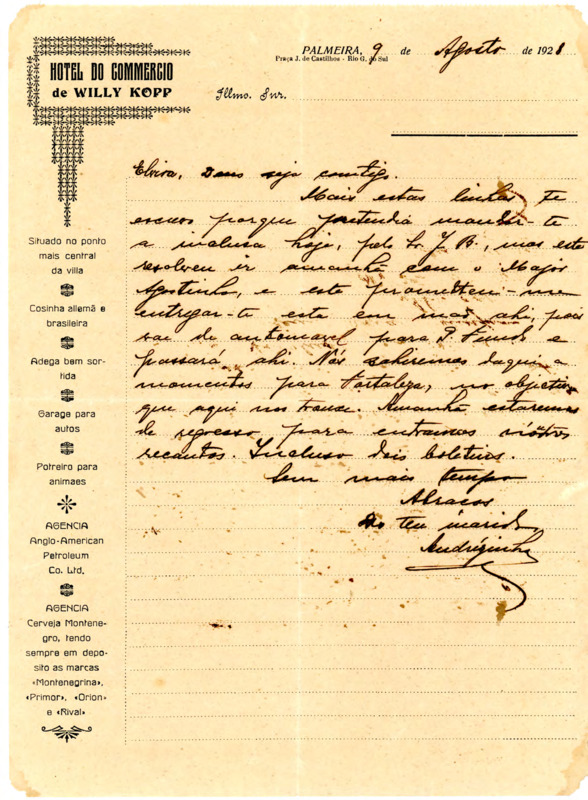 HOTEL DO COMMERCIO
de WILLY KOPP
PALMEIRA, 9 de Agosto de 1928
Praça J. de Castilhos - Rio G. do Sul
Illmo. Snr.
Situado no ponto
mais central
da villa
Cosinha allemã e
brasileira
Adega bem sor-
tida
Garage para
autos
Potreiro para
animaes
AGENCIA
Anglo-American
Petroleum
Co. Ltd.
AGENCIA
Cerveja Montene-
gro, tendo
sempre em depo-
sito as marcas
«Montenegrina»,
«Primor», «Orion»
e «Rival»
Elvira, Deus seja comtigo.
Mais estas linhas te
escrevo porque pretendia mandar-te
a inclusa hoje, pelo Sr. J. B., mas este
resolveu ir amanhã com o Major
Agostinho, e este prometteu-me
entregar-te esta em mão ahi, pois
vae de automovel para P. Fundo e
passará ahi. Nós sahiremos daqui a
momentos para Fortaleza, no objectivo
que aqui nos trouxe. Amanhã estaremos
de regresso para entrarmos n'outros
recantos. Incluso dois boletins.
Sem mais tempo
Abraços
Do teu marido
Andrézinho